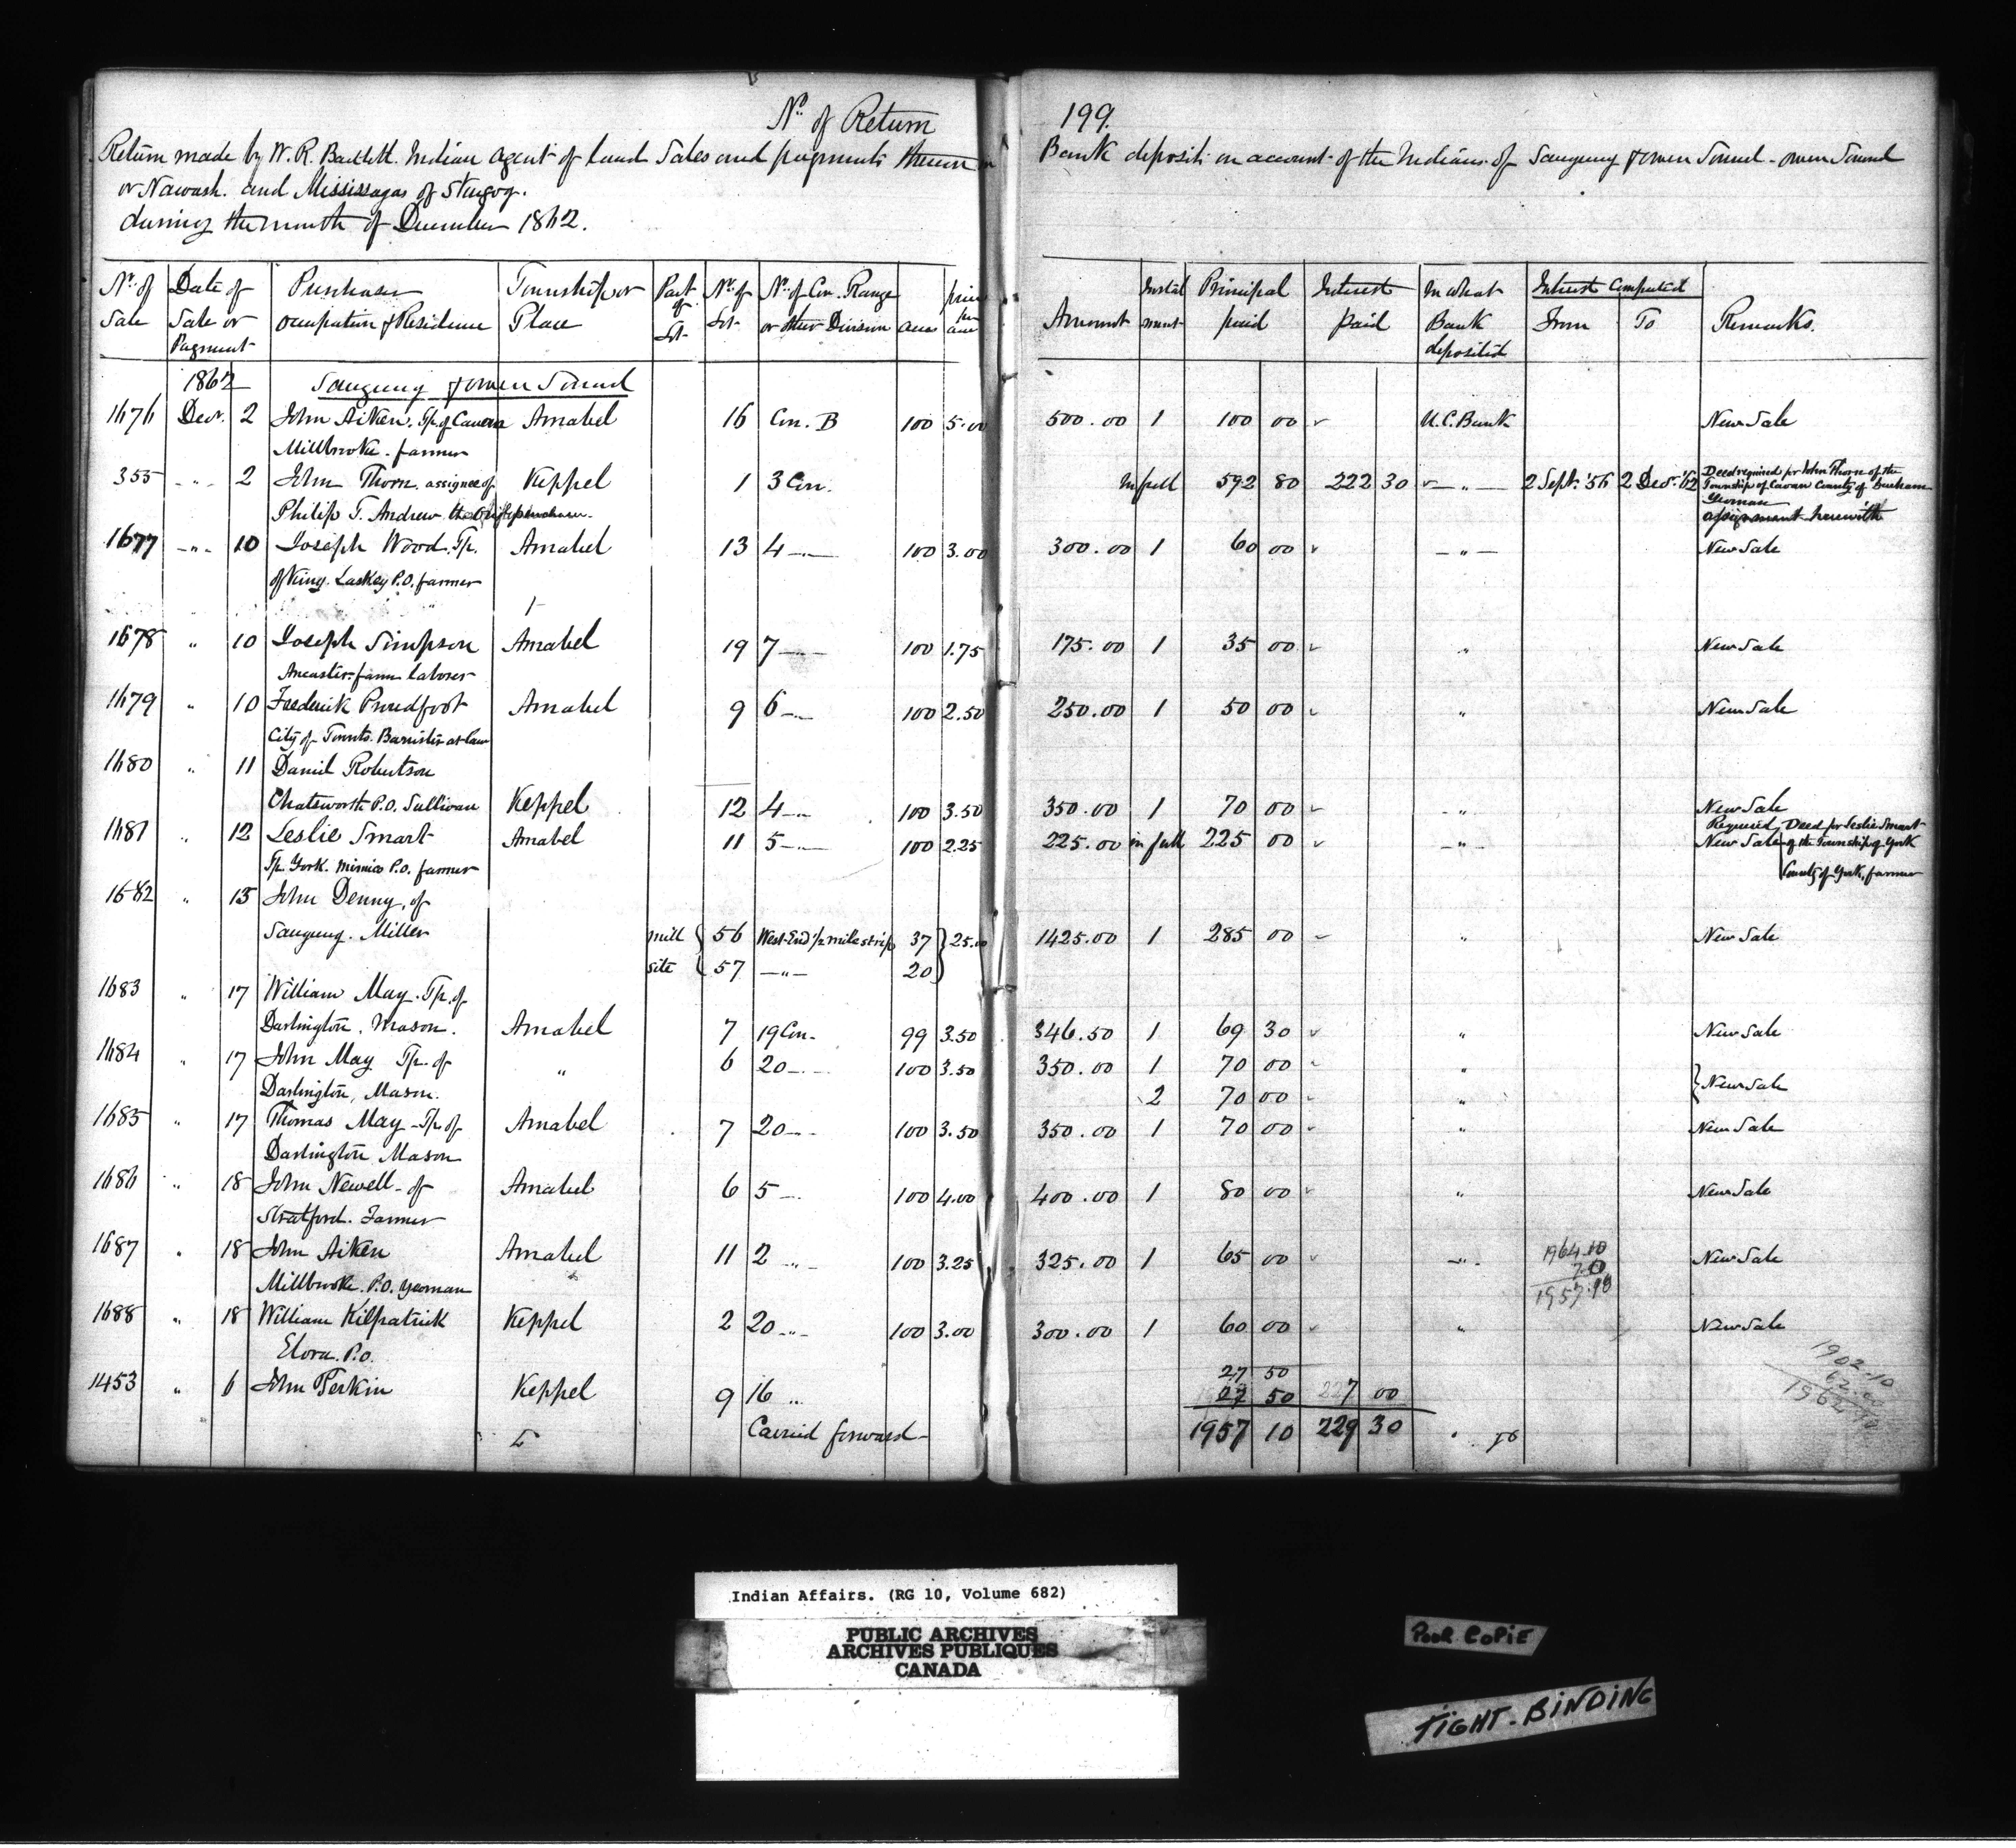 No. of Return 199.
Return made by W. R. Bartlett. Indian Agent of Land Sales and payments thereon Bank deposits on account of the Indians of Saugeeng & Owen Sound - Owen Sound
or Nawash. and Mississagas of Scugog.
during the month of December 1862.
No. of Sale Date of Sale or Payment Purchaser Occupation & Residence Township or Place Part of Lot No. of Lot No. of Con. Range or other Division acres price per acre Amount Instalment Principal paid Interest paid In what Bank deposited Interest Computed From To Remarks.
1862 Saugeeng & Owen Sound
1676 Decr. 2 John Aiken. Tp. of Cavan Amabel 16 Con. B 100 5.00 500.00 1 100 00 U.C. Bank New Sale
Millbrooke. farmer
355 " 2 John Thorn. assignee of Keppel 1 3 Con. In full 592 80 222 30 " 2 Sept. '56 2 Decr. '62 Deed required for John Thorn of the
Township of Cavan County of Durham
Yeoman
Philip T. Andrew the orig. purchaser. assignment herewith
1677 " 10 Joseph Wood. Tp. Amabel 13 4 " 100 3.00 300.00 1 60 00 " New Sale
of King. Laskey P.O. farmer
1678 " 10 Joseph Simpson Amabel 19 7 " 100 1.75 175.00 1 35 00 " New Sale
Ancaster farm laborer
1679 " 10 Frederick Proudfoot Amabel 9 6 " 100 2.50 250.00 1 50 00 " New Sale
City of Toronto. Barrister at law
1680 " 11 Daniel Robertson
Chatsworth P.O. Sullivan Keppel 12 4 " 100 3.50 350.00 1 70 00 " New Sale
1681 " 12 Leslie Smart Amabel 11 5 " 100 2.25 225.00 in full 225 00 " New Sale Required Deed for Leslie Smart
of the Township of York
Tp. York. Mimico P.O. farmer County of York, farmer
1682 " 15 John Denny, of
Saugeeng. Miller mill 56 West End 1/2 mile strip 37 25.00 1425.00 1 285 00 " New Sale
site 57 " 20
1683 " 17 William May. Tp. of
Darlington. Mason. Amabel 7 19 Con. 99 3.50 346.50 1 69 30 " New Sale
1684 " 17 John May Tp. of " 6 20 " 100 3.50 350.00 1 70 00 "
Darlington, Mason. 2 70 00 " New Sale
1685 " 17 Thomas May - Tp. of Amabel 7 20 " 100 3.50 350.00 1 70 00 " New Sale
Darlington Mason
1686 " 18 John Newell - of Amabel 6 5 " 100 4.00 400.00 1 80 00 " New Sale
Stratford. Farmer
1687 " 18 John Aiken Amabel 11 2 " 100 3.25 325.00 1 65 00 " 1964.10 New Sale
7.0
Millbrooke. P.O. Yeoman 1957.10
1688 " 18 William Kilpatrick Keppel 2 20 " 100 3.00 300.00 1 60 00 " New Sale
Elora. P.O. 1902.10
27 50 62.00
1453 " 6 John Perkin Keppel 9 16 " 27 50 7 00
Carried forward - 1957 10 229 30 "
Indian Affairs. (RG 10, Volume 682)
PUBLIC ARCHIVES
ARCHIVES PUBLIQUES
CANADA
POOR COPIE
TIGHT-BINDING